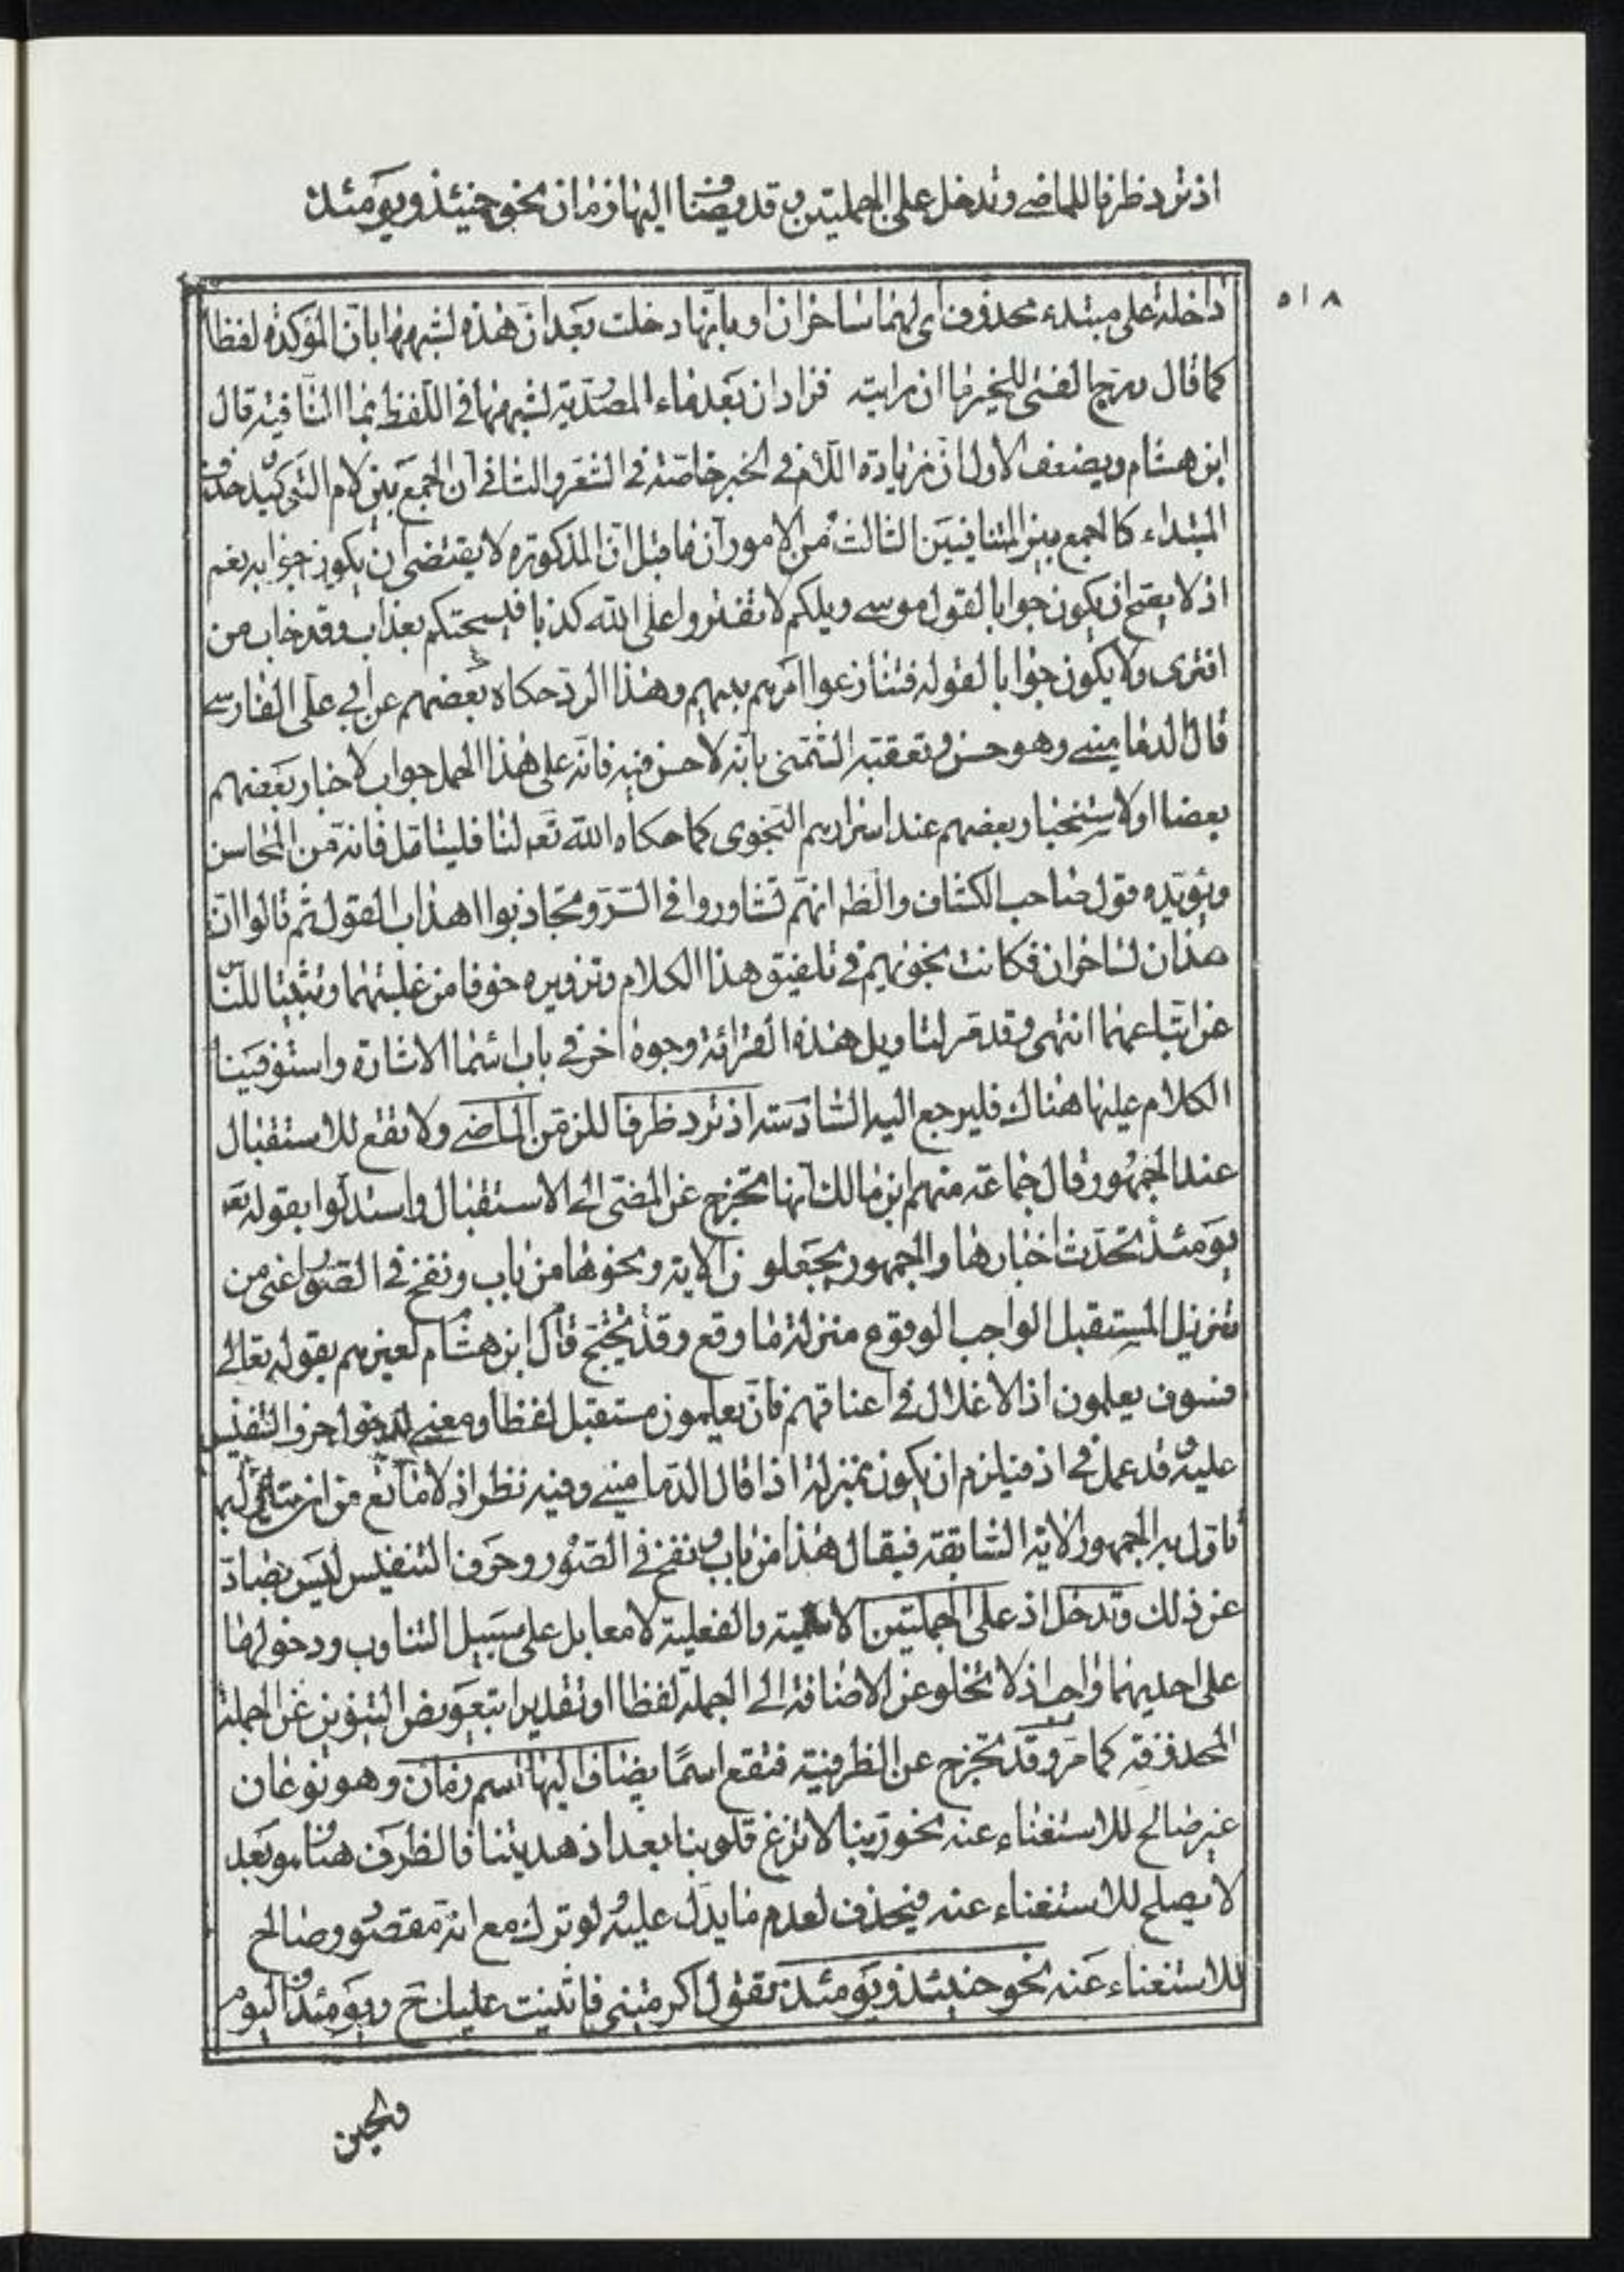 اذ ترد ظرفا للماضي وتدخل على الجملتين وقد يضاف اليها زمان نحو حينئذ ويومئذ
٥١٨
داخلة على مبتدء محذوف اى لهما ساحران او بانها دخلت بعد ان هذه لشبهها بان المؤكدة لفظا
كما قال ورج الفتى للخير ما ان رايته فزاد ان بعد ماء المصدرية لشبهها في اللفظ بما النافية قال
ابن هشام ويضعف الاول ان زيادة اللام في الخبر خاصة في الشعر والثاني ان الجمع بين لام التوكيد وحذف
المبتداء كالجمع بين المتنافيين الثالث من الامور ان ما قبل ان المذكورة لا يقتضى ان يكون جوابه نعم
اذ لا يصح ان يكون جوابا لقول موسى ويلكم لا تفتروا على الله كذبا فيسحتكم بعذاب وقد خاب من
افترى ولا يكون جوابا لقوله فتنازعوا امرهم بينهم وهذا الرد حكاه بعضهم عن ابي على الفارسي
قال الدماميني وهو حسن وتعقبه الشمنى بانه لا حسن فيه فانه على هذا الحمل جواب لاخبار بعضهم
بعضا او لاستخبار بعضهم عند اسرارهم النجوى كما حكاه الله تعه لنا فليتامل فانه من المحاسن
ويؤيده قول صاحب الكشاف والظه انهم تشاوروا في السر وتجاذبوا اهداب القول ثم قالوا ان
هذان لساحران فكانت نجويهم في تلفيق هذا الكلام وتزويره خوفا من غلبتهما وتثبيتا للناس
عن اتباعهما انتهى وقد مر لتاويل هذه القرائة وجوه اخر في باب اسماء الاشارة واستوفينا
الكلام عليها هناك فليرجع اليه السادسة اذ ترد ظرفا للزمن الماضي ولا تقع للاستقبال
عند الجمهور وقال جماعة منهم ابن مالك انها تخرج عن المضى الى الاستقبال واستدلوا بقوله تعه
يومئذ تحدث اخبارها والجمهور يجعلون الاية ونحوها من باب ونفخ في الصور اعني من
تنزيل المستقبل الواجب الوقوع منزلة ما وقع وقد يحتج قال ابن هشام لغيرهم بقوله تعالى
فسوف يعلمون اذ الاغلال في اعناقهم فان يعلمون مستقبل لفظا ومعنى لدخول حرف التنفيس
عليه وقد عمل في اذ فيلزم ان يكون بمنزلة اذا قال الدماميني وفيه نظر اذ لا مانع من ان
تاول به الجمهور الاية السابقة فيقال هذا من باب ونفخ في الصور وحرف التنفيس ليس بصاد
عن ذلك وتدخل اذ على الجملتين الاسمية والفعلية لا معا بل على سبيل التناوب ودخولها
على احديهما واجب اذ لا تخلو عن الاضافة الى الجملة لفظا او تقديرا بتعويض التنوين عن الجملة
المحذوفة كما مر وقد تخرج عن الظرفية فتقع اسمًا يضاف اليها اسم زمان وهو نوعان
غير صالح للاستغناء عنه نحو ربنا لا تزغ قلوبنا بعد اذ هديتنا فالظرف هنا وهو بعد
لا يصلح للاستغناء عنه فيحذف لعدم ما يدل عليه لو ترك مع انه مقصود وصالح
للاستغناء عنه نحو حينئذ ويومئذ تقول اكرمتنى فاثنيت عليك ح ويومئذ فاليوم
والحين